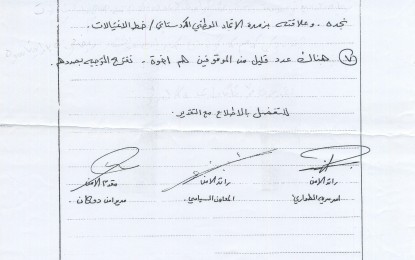 نجده . وعلاقته بزمرة الاتحاد الوطني الكردستاني / خط الاغتيالات .
(٧) هناك عدد قليل من الموقوفين هم اخوة . نقترح التوجيه بصددهم .
للتفضل بالاطلاع مع التقدير .
رائد الامن
امر سرية الطوارئ
رائد الامن
المعاون السياسي
مقدم الامن
مدير امن دوكان